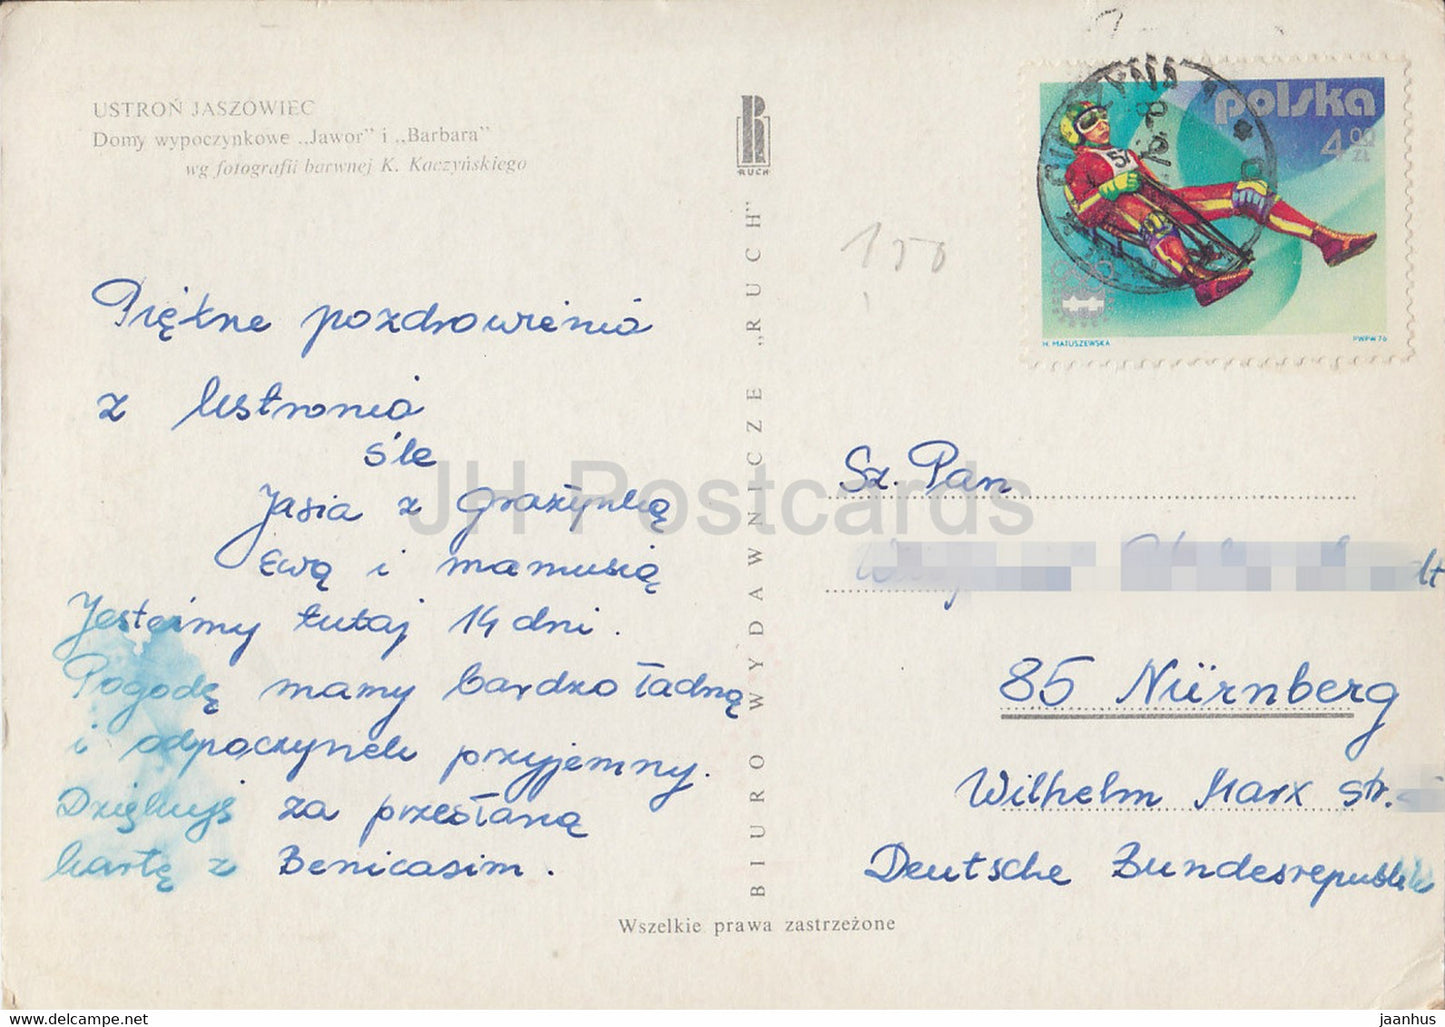 USTROŃ JASZOWIEC
Domy wypoczynkowe „Jawor” i „Barbara”
wg fotografii barwnej K. Kaczyńskiego
RUCH
polska
4.00
ZŁ
57
H. MATUSZEWSKA
PWPW 76
Piękne pozdrowienia
z Ustronia
śle
Jasia z Grażynką
Ewą i mamusią
Jesteśmy tutaj 14 dni.
Pogodę mamy bardzo ładną
i odpoczynek przyjemny.
Dziękuję za przesłaną
kartę z Benicasim.
BIURO WYDAWNICZE „RUCH”
Sz. Pan
85 Nürnberg
Wilhelm Marx str.
Deutsche Bundesrepublik
Wszelkie prawa zastrzeżone
JH Postcards
www.delcampe.net
jaanhus